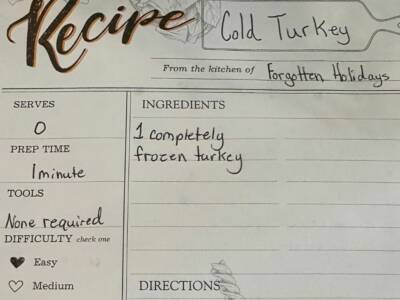 Recipe
Cold Turkey
From the kitchen of Forgotten Holidays
SERVES
0
PREP TIME
1 minute
TOOLS
None required
DIFFICULTY check one
Easy
Medium
INGREDIENTS
1 completely
frozen turkey
DIRECTIONS